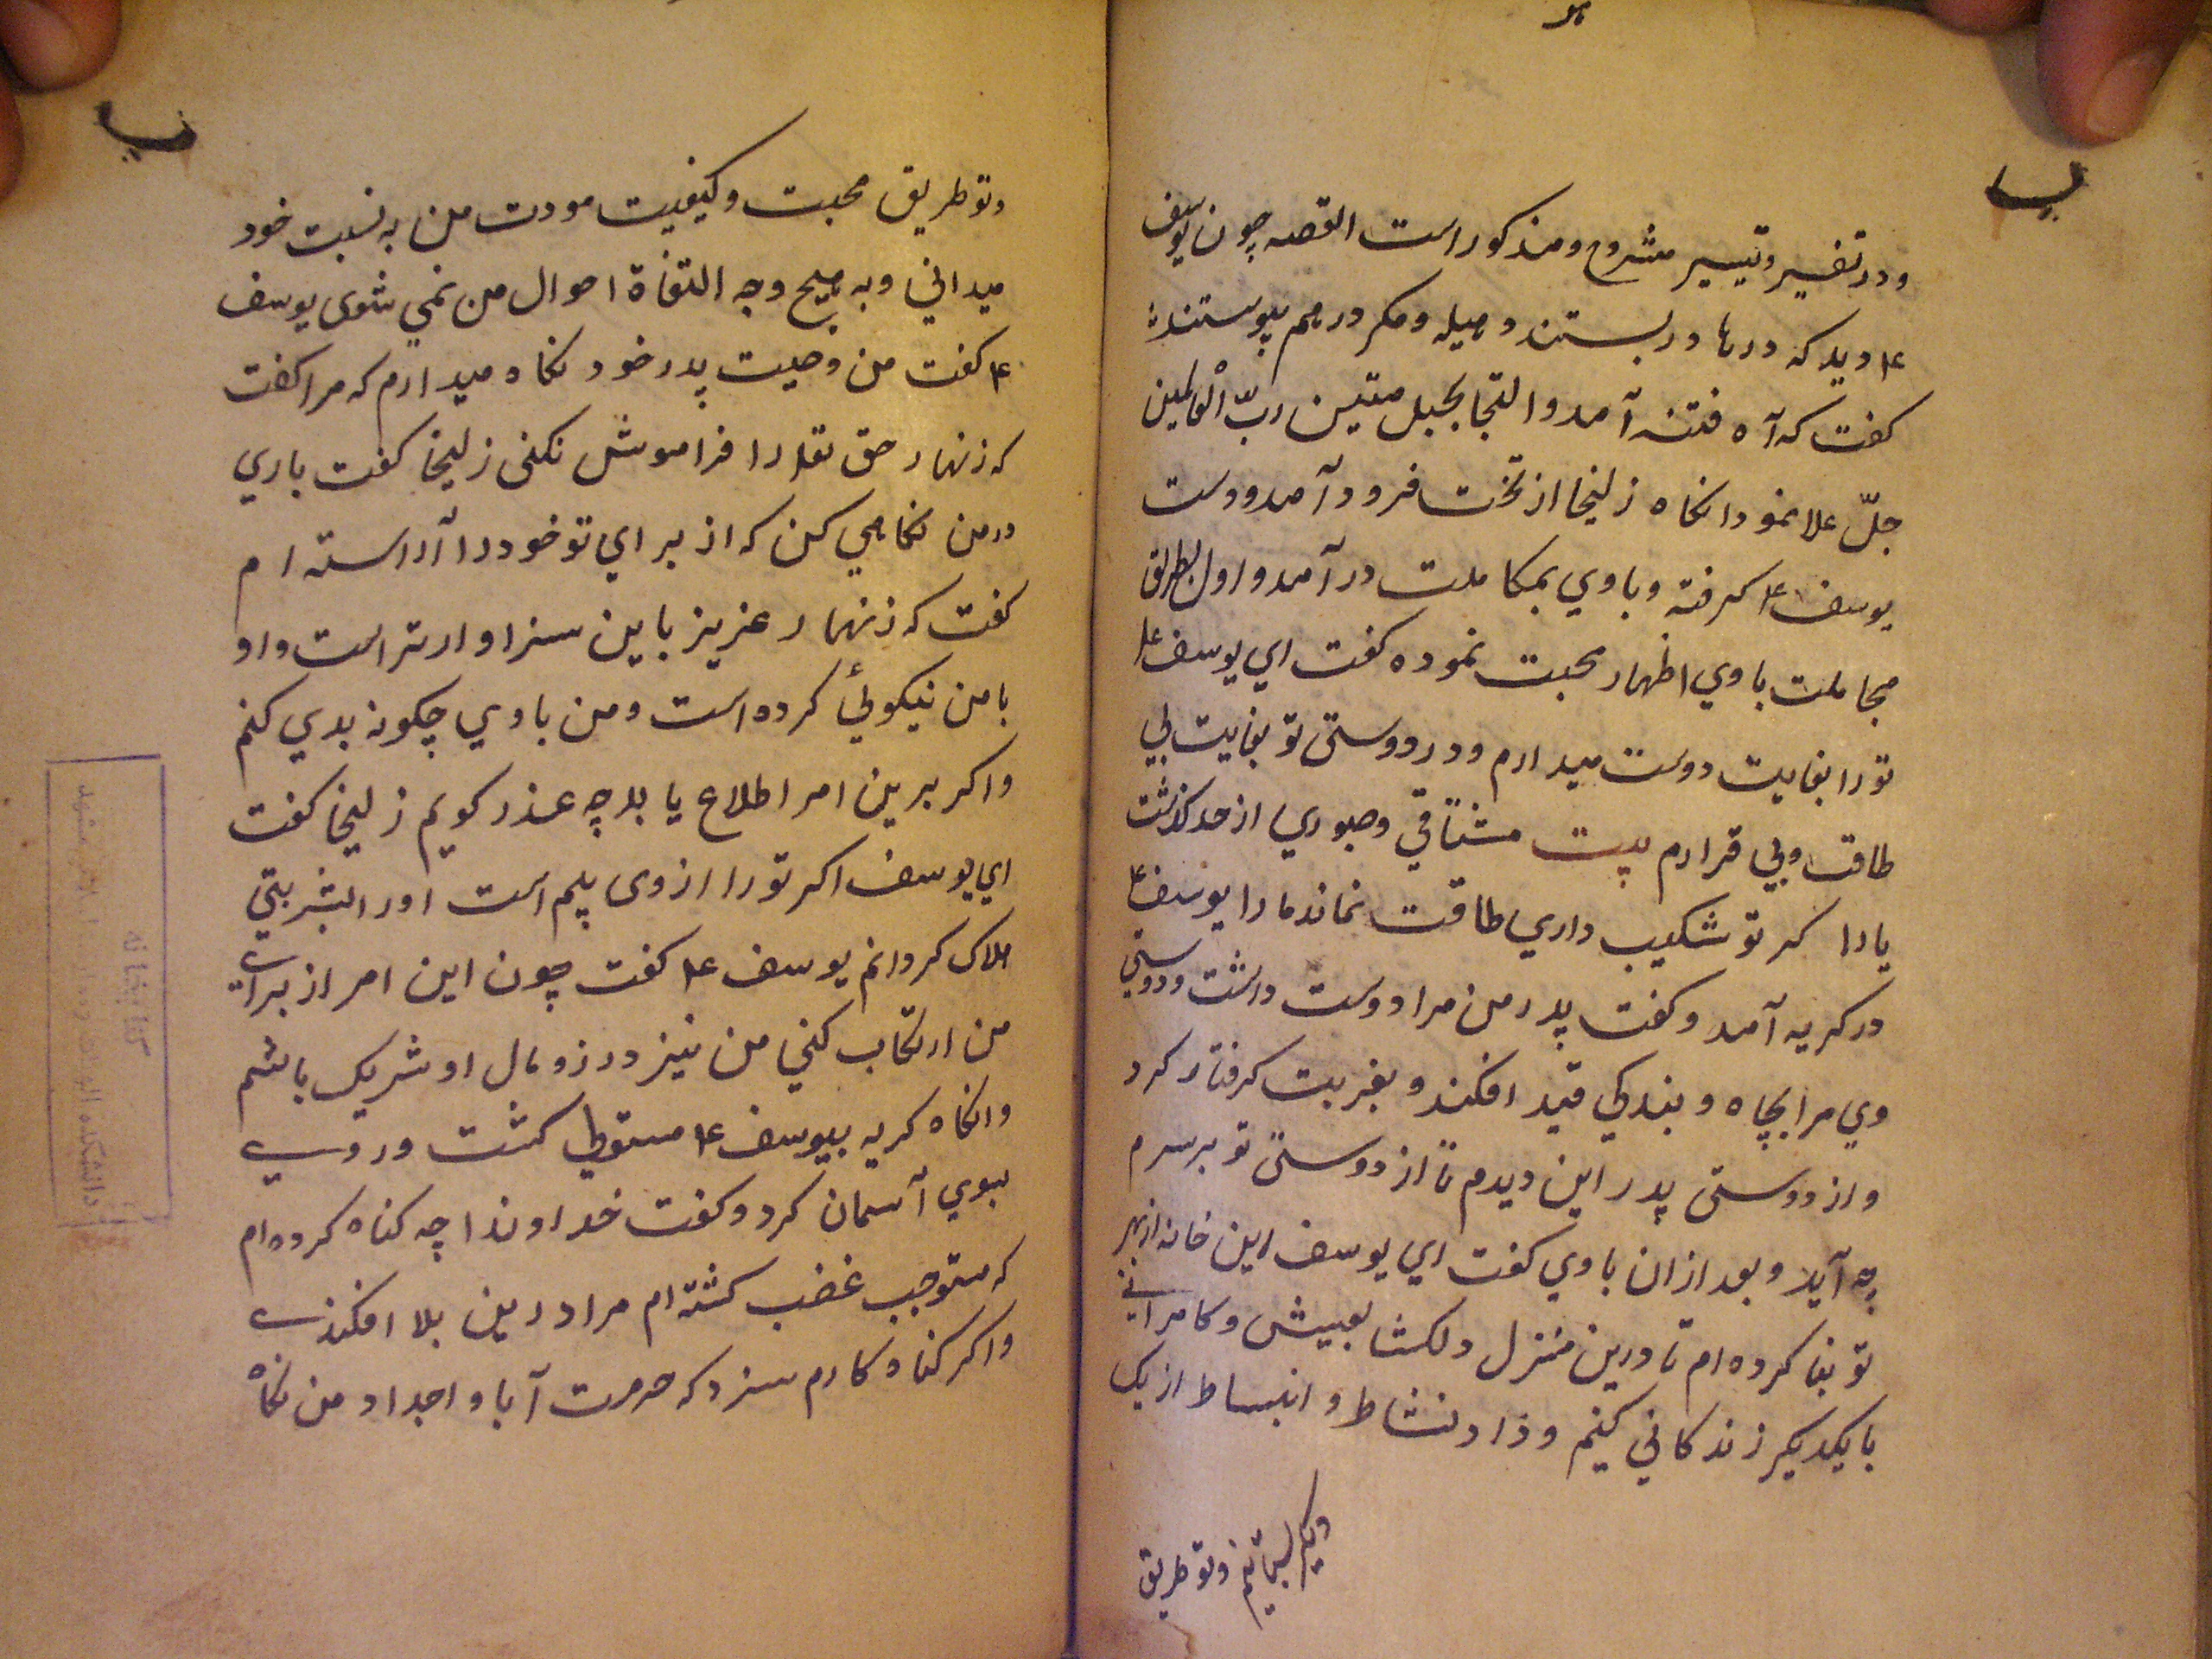 ودر تفسیر وتیسیر مشروح ومذکور است القصه چون یوسف
ع دید که درها در بستند و حیله ومکر درهم پیوستند
کفت که آه فتنه آمد والتجا بحبل متین ربّ العالمین
جلّ علا نمود انکاه زلیخا از تخت فرود آمد ودست
یوسف ع کرفته وباوي بمکاملت در آمد و اول بطریق
مجاملت باوي اظهار محبت نموده کفت اي یوسف ع
تورا بغایت دوست میدارم ودر دوستی تو بغایت بي
طاقت وبي قرارم بیت مشتاقي وصبوري از حد کذشت
یارا کر تو شکیب داري طاقت نماند مارا یوسف ع
در کریه آمد وکفت پدر من مرا دوست داشت ودوستي
وي مرا بچاه و بندکي قید افکند و بغربت کرفتار کرد
واز دوستی پدر این دیدم تا از دوستی تو بر سرم
چه آید وبعد ازان باوي کفت اي یوسف این خانه از بهر
تو بنا کرده ام تا درین منزل دلکشا بعیش وکامراني
بایکدیکر زندکاني کنیم وداد نشاط و انبساط از یک
دیکر بستانیم وتو طریق
وتو طریق محبت وکیفیت مودت من به نسبت خود
میداني وبه هیچ وجه التفاة احوال من نمي شوی یوسف
ع کفت من وصیت پدر خود نکاه میدارم که مرا کفت
که زنهار حق تعلا را فراموش نکنی زلیخا کفت باري
درمن نکاهي کن که از براي تو خودرا آراسته ام
کفت که زنهار عزیز باین سزاوارتر است واو
بامن نیکوئي کرده است ومن باوي چکونه بدي کنم
واکر برین امر اطلاع یابد چه عذر کویم زلیخا کفت
اي یوسف اکر تورا ازوی بیم است اورا بشربتي
هلاک کردانم یوسف ع کفت چون این امر از براي
من ارتکاب کني من نیز در زوبال او شریک باشم
وانکاه کریه بیوسف ع مستولي کشت وروي
بسوي آسمان کرد وکفت خداوندا چه کناه کرده ام
که مستوجب غضب کشته ام مرا درین بلا افکندي
واکر کناه کارم سزد که حرمت آبا واجداد من نکاه